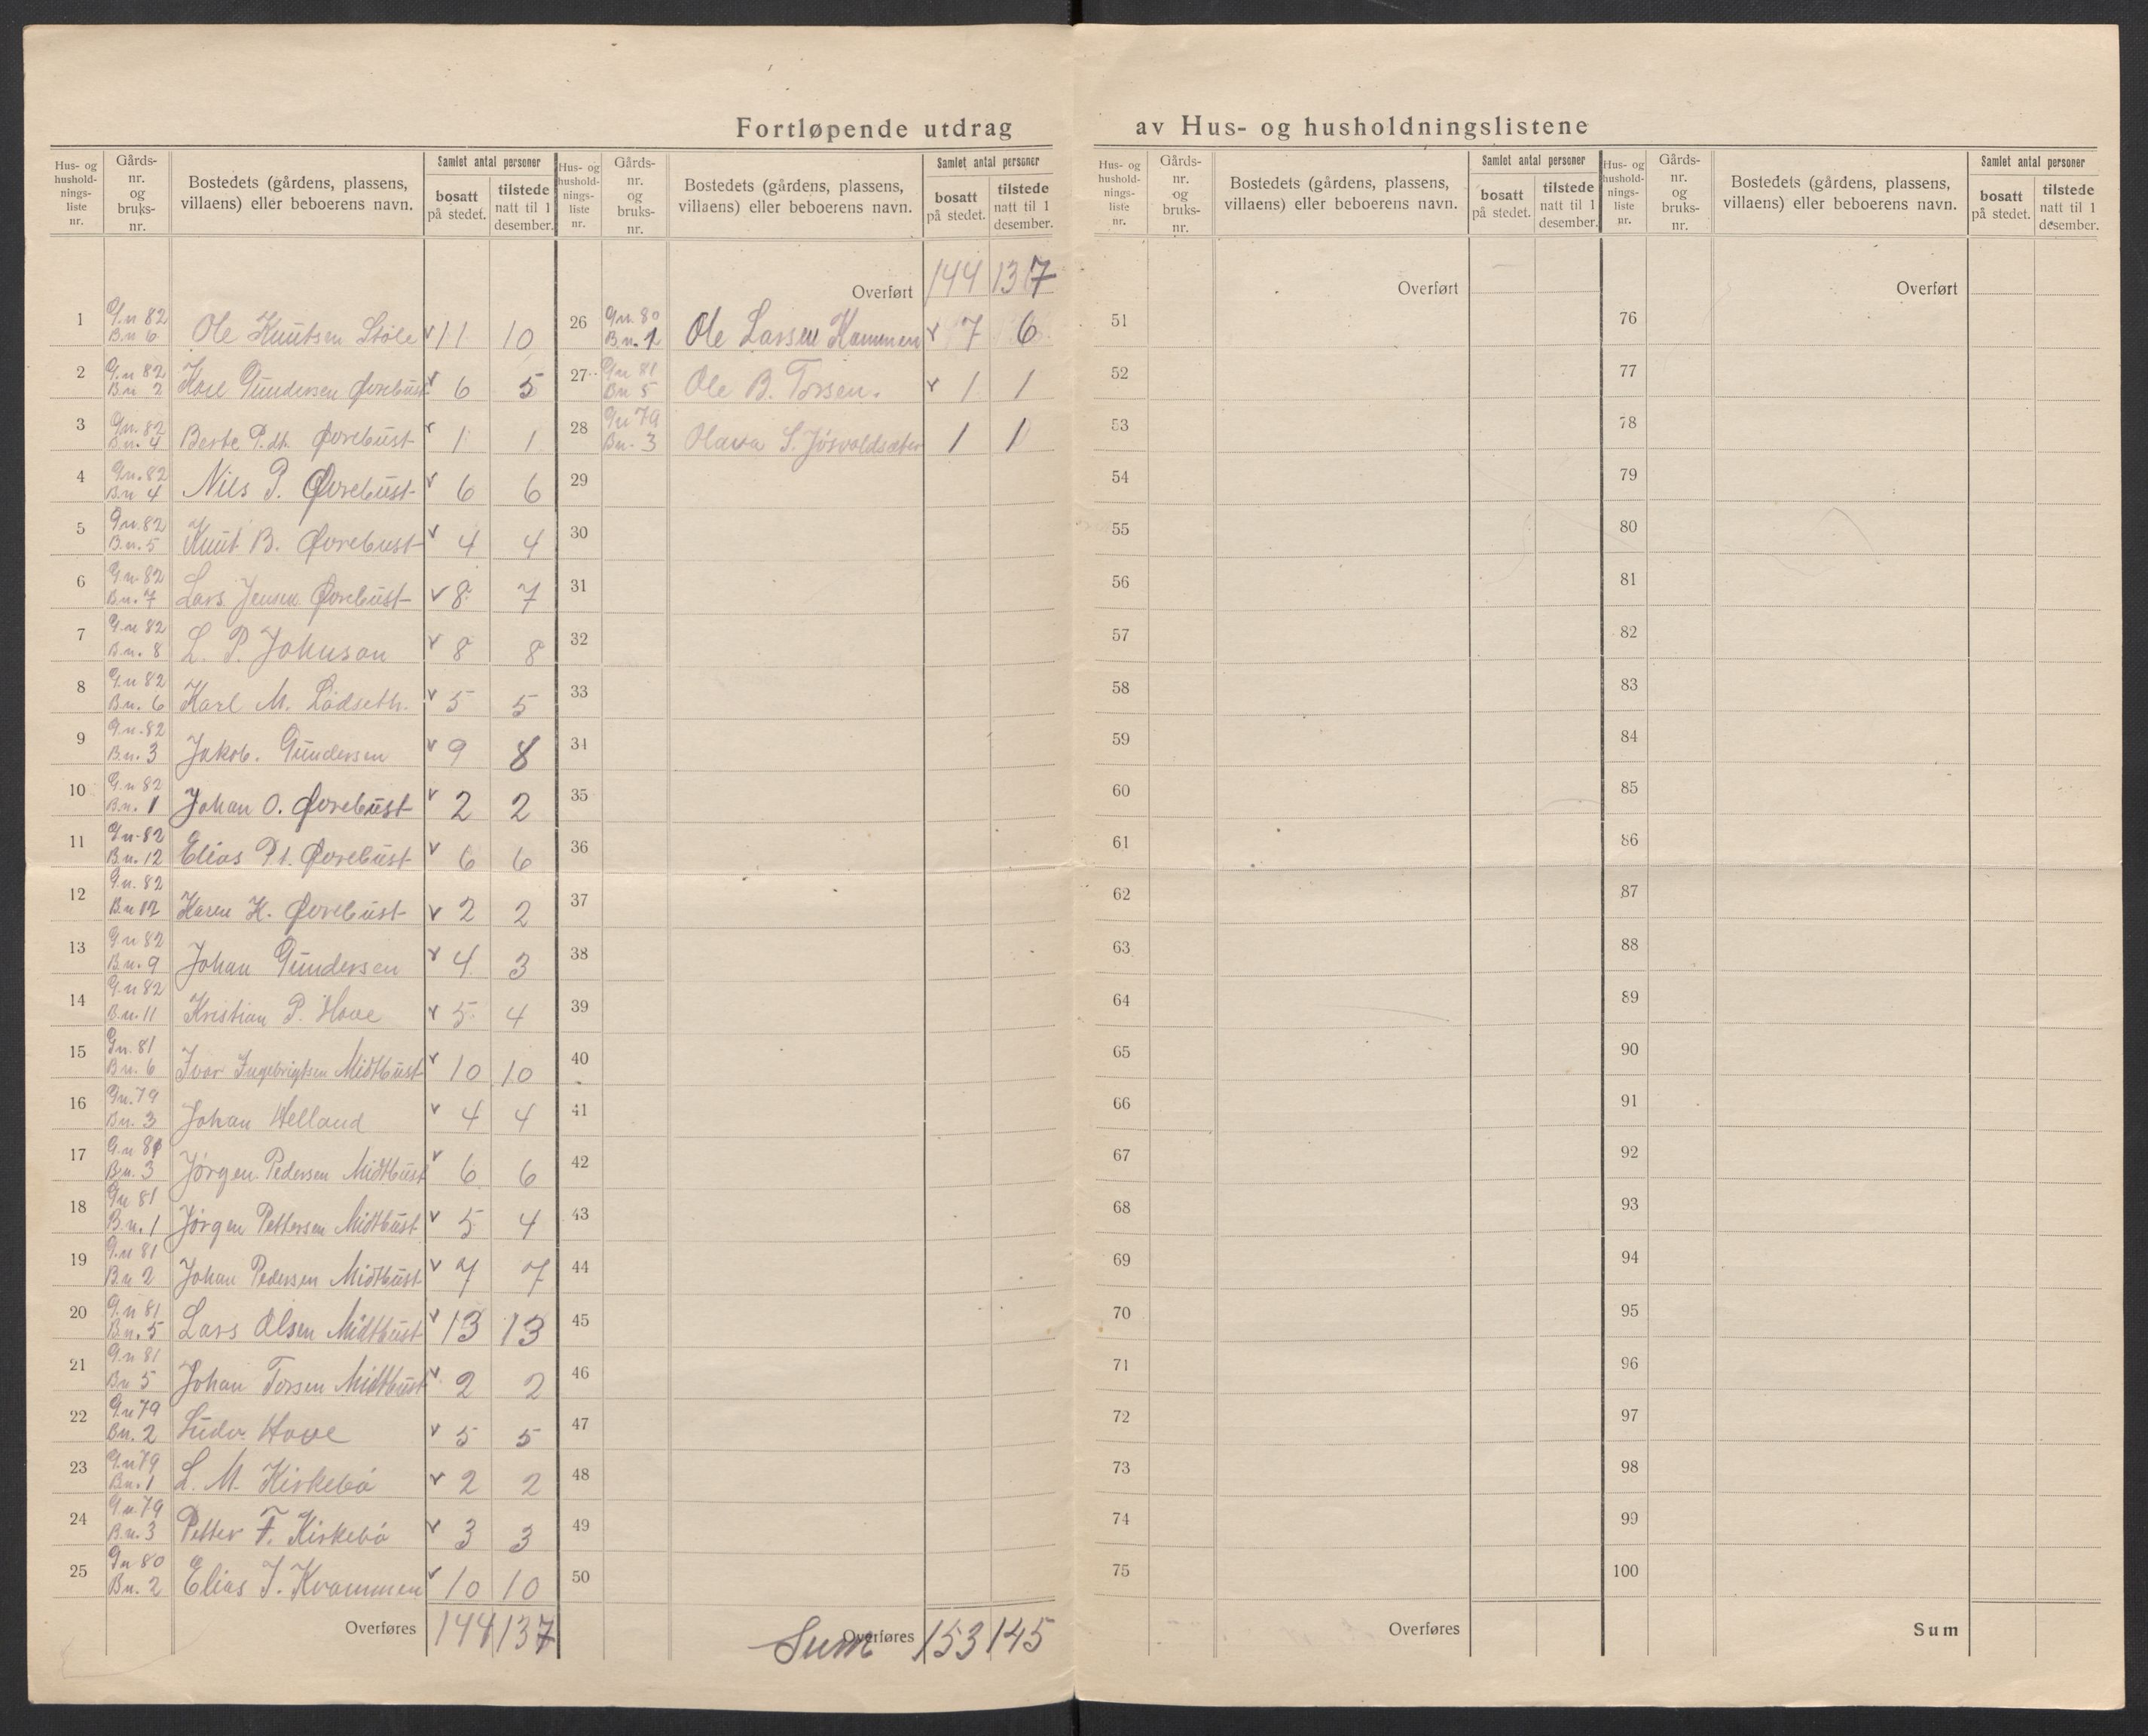 Fortløpende utdrag av Hus- og husholdningslistene
Hus- og hushold- nings- liste nr. | Gårds- nr. og bruks- nr. | Bostedets (gårdens, plassens, villaens) eller beboerens navn. | Samlet antal personer bosatt på stedet. | tilstede natt til 1 desember.
1 G.n 82 B.n 6 Ole Knutsen Støle 11 10
2 G.n 82 B.n 2 Karl Gundersen Øvrebust 6 5
3 Gn. 82 B.n. 4 Berte P.dt. Øvrebust 1 1
4 Gn. 82 B.n 4 Nils P. Øvrebust 6 6
5 Gn. 82 B.n. 5 Knut B. Øvrebust 4 4
6 Gn. 82 B.n. 7 Lars Jensen Øvrebust 8 7
7 G.n 82 B.n. 8 L. P. Johnson 8 8
8 G.n 82 B.n. 6 Karl M. Lødseth. 5 5
9 G.n. 82 B.n. 3 Jakob. Gundersen 9 8
10 G.n 82 B.n. 1 Johan O. Øvrebust 2 2
11 Gn. 82 B.n. 12 Elias Pt. Øvrebust 6 6
12 G.n. 82 B.n 12 Karen K. Øvrebust 2 2
13 Gn 82 B.n. 9 Johan Gundersen 4 3
14 G.n 82 B.n. 11 Kristian P. Hove 5 4
15 Gn. 81 B.n. 6 Ivar Ingebrigtsen Midtbust 10 10
16 Gn. 79 Bn. 3 Johan Helland 4 4
17 G.n 81 B.n. 3 Jørgen Pedersen Midtbust 6 6
18 Gn 81 B.n. 1 Jørgen Pettersen Midtbust 5 4
19 G.n 81 B.n 2 Johan Pedersen Midtbust 7 7
20 G.n 81 B.n. 5 Lars Olsen Midtbust 13 13
21 G.n 81 B.n 5 Johan Torsen Midtbust 2 2
22 G.n 79 Bn. 2 Ludv. Hove 5 5
23 G.n 79 Bn. 1 L. M. Kirkebø 2 2
24 G.n. 79 B.n. 3 Petter F. Kirkebø 3 3
25 Gn 80 Bn. 2 Elias J. Kvammen 10 10
Overføres 144 137
Hus- og hushold- nings- liste nr. | Gårds- nr. og bruks- nr. | Bostedets (gårdens, plassens, villaens) eller beboerens navn. | Samlet antal personer bosatt på stedet. | tilstede natt til 1 desember.
Overført 144 137
26 Gn. 80 B.n. 1 Ole Larsen Kammen 7 6
27 Gn 81 Bn 5 Ole B. Torsen. 1 1
28 Gn 79 Bn. 3 Olava S. 1 1
29
30
31
32
33
34
35
36
37
38
39
40
41
42
43
44
45
46
47
48
49
50
Overføres Sum 153 145
Hus- og hushold- nings- liste nr. | Gårds- nr. og bruks- nr. | Bostedets (gårdens, plassens, villaens) eller beboerens navn. | Samlet antal personer bosatt på stedet. | tilstede natt til 1 desember.
Overført
51
52
53
54
55
56
57
58
59
60
61
62
63
64
65
66
67
68
69
70
71
72
73
74
75
Overføres
Hus- og hushold- nings- liste nr. | Gårds- nr. og bruks- nr. | Bostedets (gårdens, plassens, villaens) eller beboerens navn. | Samlet antal personer bosatt på stedet. | tilstede natt til 1 desember.
Overført
76
77
78
79
80
81
82
83
84
85
86
87
88
89
90
91
92
93
94
95
96
97
98
99
100
Sum